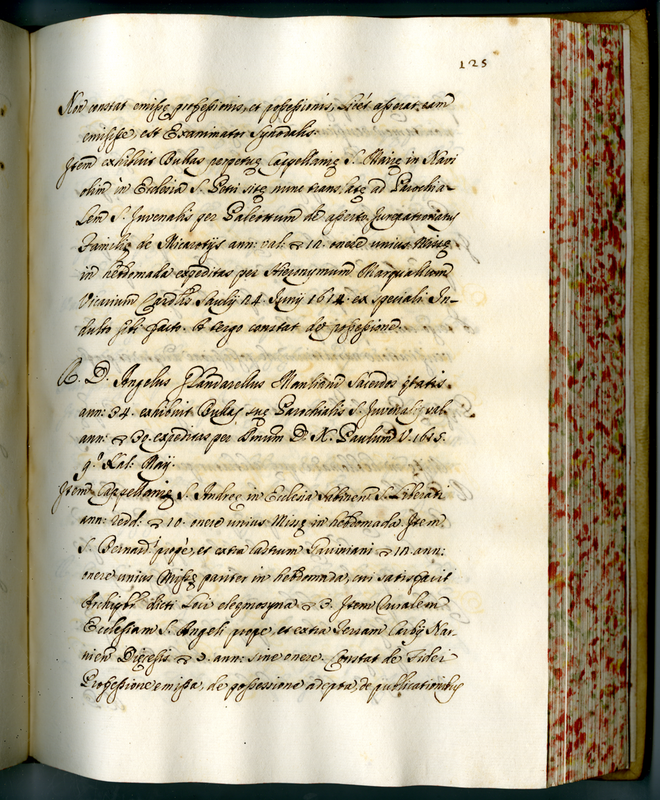 125
Non constat emisse professionis, et possessionis, licet asserat, eam
emisisse, est Examinator Synodalis.
Item exhibuit Bullas perpetuę Cappellanię S. Marię in Navi
olim in Ecclesia S. Petri sitę nunc translatę ad Parochia-
lem S. Juvenalis per Galeottum de Jurepatronatus
Familię de Micarotijs ann: val: 10. onere unius Missę
in hebdomada expeditas per Hieronymum
Vicarium Cardlis Sauly 24 Junij 1614. ex speciali In-
dulto sibi facto. A tergo constat de possessione.
R. D. Angelus Flandarellus Sacerdos ętatis
ann: 34. exhibuit Bullas suę Parochialis S. Juvenalis val:
ann: 30. expeditas per Smum D. N. Paulum V. 1615.
Kal: Maij.
Item Cappellanię S. Andreę in Ecclesia S. Liberati
ann: redd: 10. onere unius Missę in hebdomada. Item
S. Bernardi prope, et extra Castrum ann:
onere unius Missę pariter in hebdomada, cui satisfacit
Archipbr dicti Loci elegmosyna 3. Item Curalem
Ecclesiam S. Angeli prope, et extra Terram Nar-
nien Dięcesis 3. ann: sine onere. Constat de Fidei
Professione emissa, de possessione adepta, de publicationibus